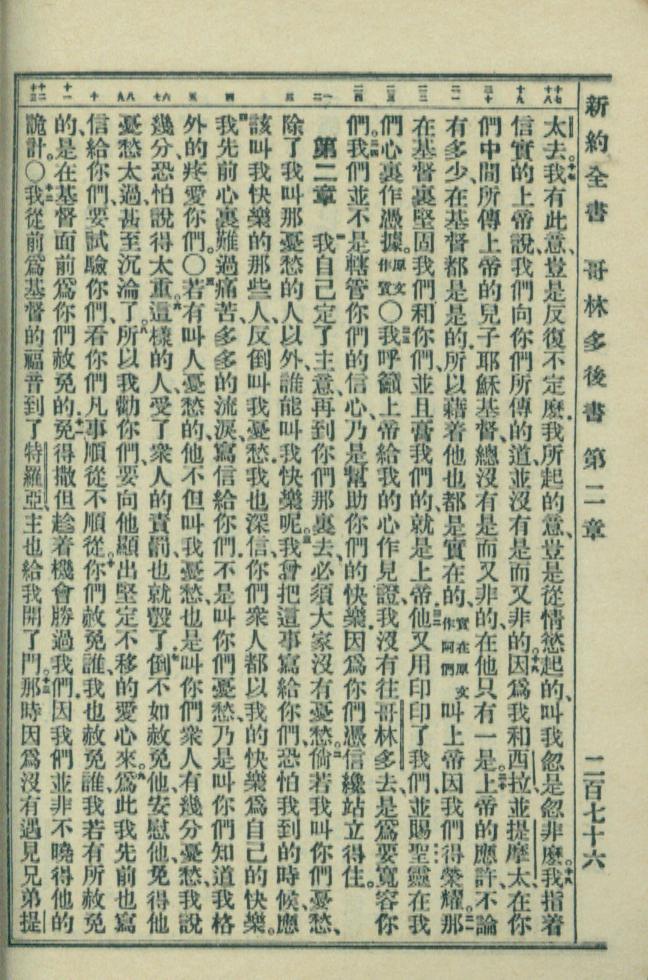 新約全書 哥林多後書 第二章 二百七十六
十七 十八
太去、我有此意、豈是反復不定麼、我所起的意、豈是從情慾起的、叫我忽是忽非麼。我指着
十九
信實的上帝說、我們向你們所傳的道、並沒有是而又非的、因爲我和西拉、並提摩太、在你
二十
們中間所傳上帝的兒子耶穌基督、總沒有是而又非的、在他只有一是。上帝的應許、不論
二一
有多少、在基督都是是的、所以藉着他也都是實在的、實在原文作阿們叫上帝因我們得榮耀。那
二二
在基督裏堅固我們和你們、並且膏我們的、就是上帝。他又用印印了我們、並賜聖靈在我
二三
們心裏作憑據。原文作質〇我呼籲上帝給我的心作見證、我沒有往哥林多去、是爲要寬容你
二四
們。我們並不是轄管你們的信心、乃是幫助你們的快樂、因爲你們憑信纔站立得住。
一 二
第二章 我自己定了主意、再到你們那裏去、必須大家沒有憂愁。倘若我叫你們憂愁、
三
除了我叫那憂愁的人以外、誰能叫我快樂呢。我曾把這事寫給你們、恐怕我到的時候、應
該叫我快樂的那些人、反倒叫我憂愁、我也深信、你們衆人都以我的快樂爲自己的快樂。
四
我先前心裏難過痛苦、多多的流淚、寫信給你們、不是叫你們憂愁、乃是叫你們知道我格
五
外的疼愛你們。〇若有叫人憂愁的、他不但叫我憂愁、也是叫你們衆人有幾分憂愁、我說
六 七
幾分、恐怕說得太重。這樣的人、受了衆人的責罰、也就彀了。倒不如赦免他、安慰他、免得他
八 九
憂愁太過、甚至沉淪了。所以我勸你們、要向他顯出堅定不移的愛心來。爲此我先前也寫
十
信給你們、要試驗你們、看你們凡事順從不順從。你們赦免誰、我也赦免誰、我若有所赦免
十一
的、是在基督面前爲你們赦免的。免得撒但趁着機會勝過我們、因我們並非不曉得他的
十二 十三
詭計。〇我從前爲基督的福音到了特羅亞、主也給我開了門。那時因爲沒有遇見兄弟提